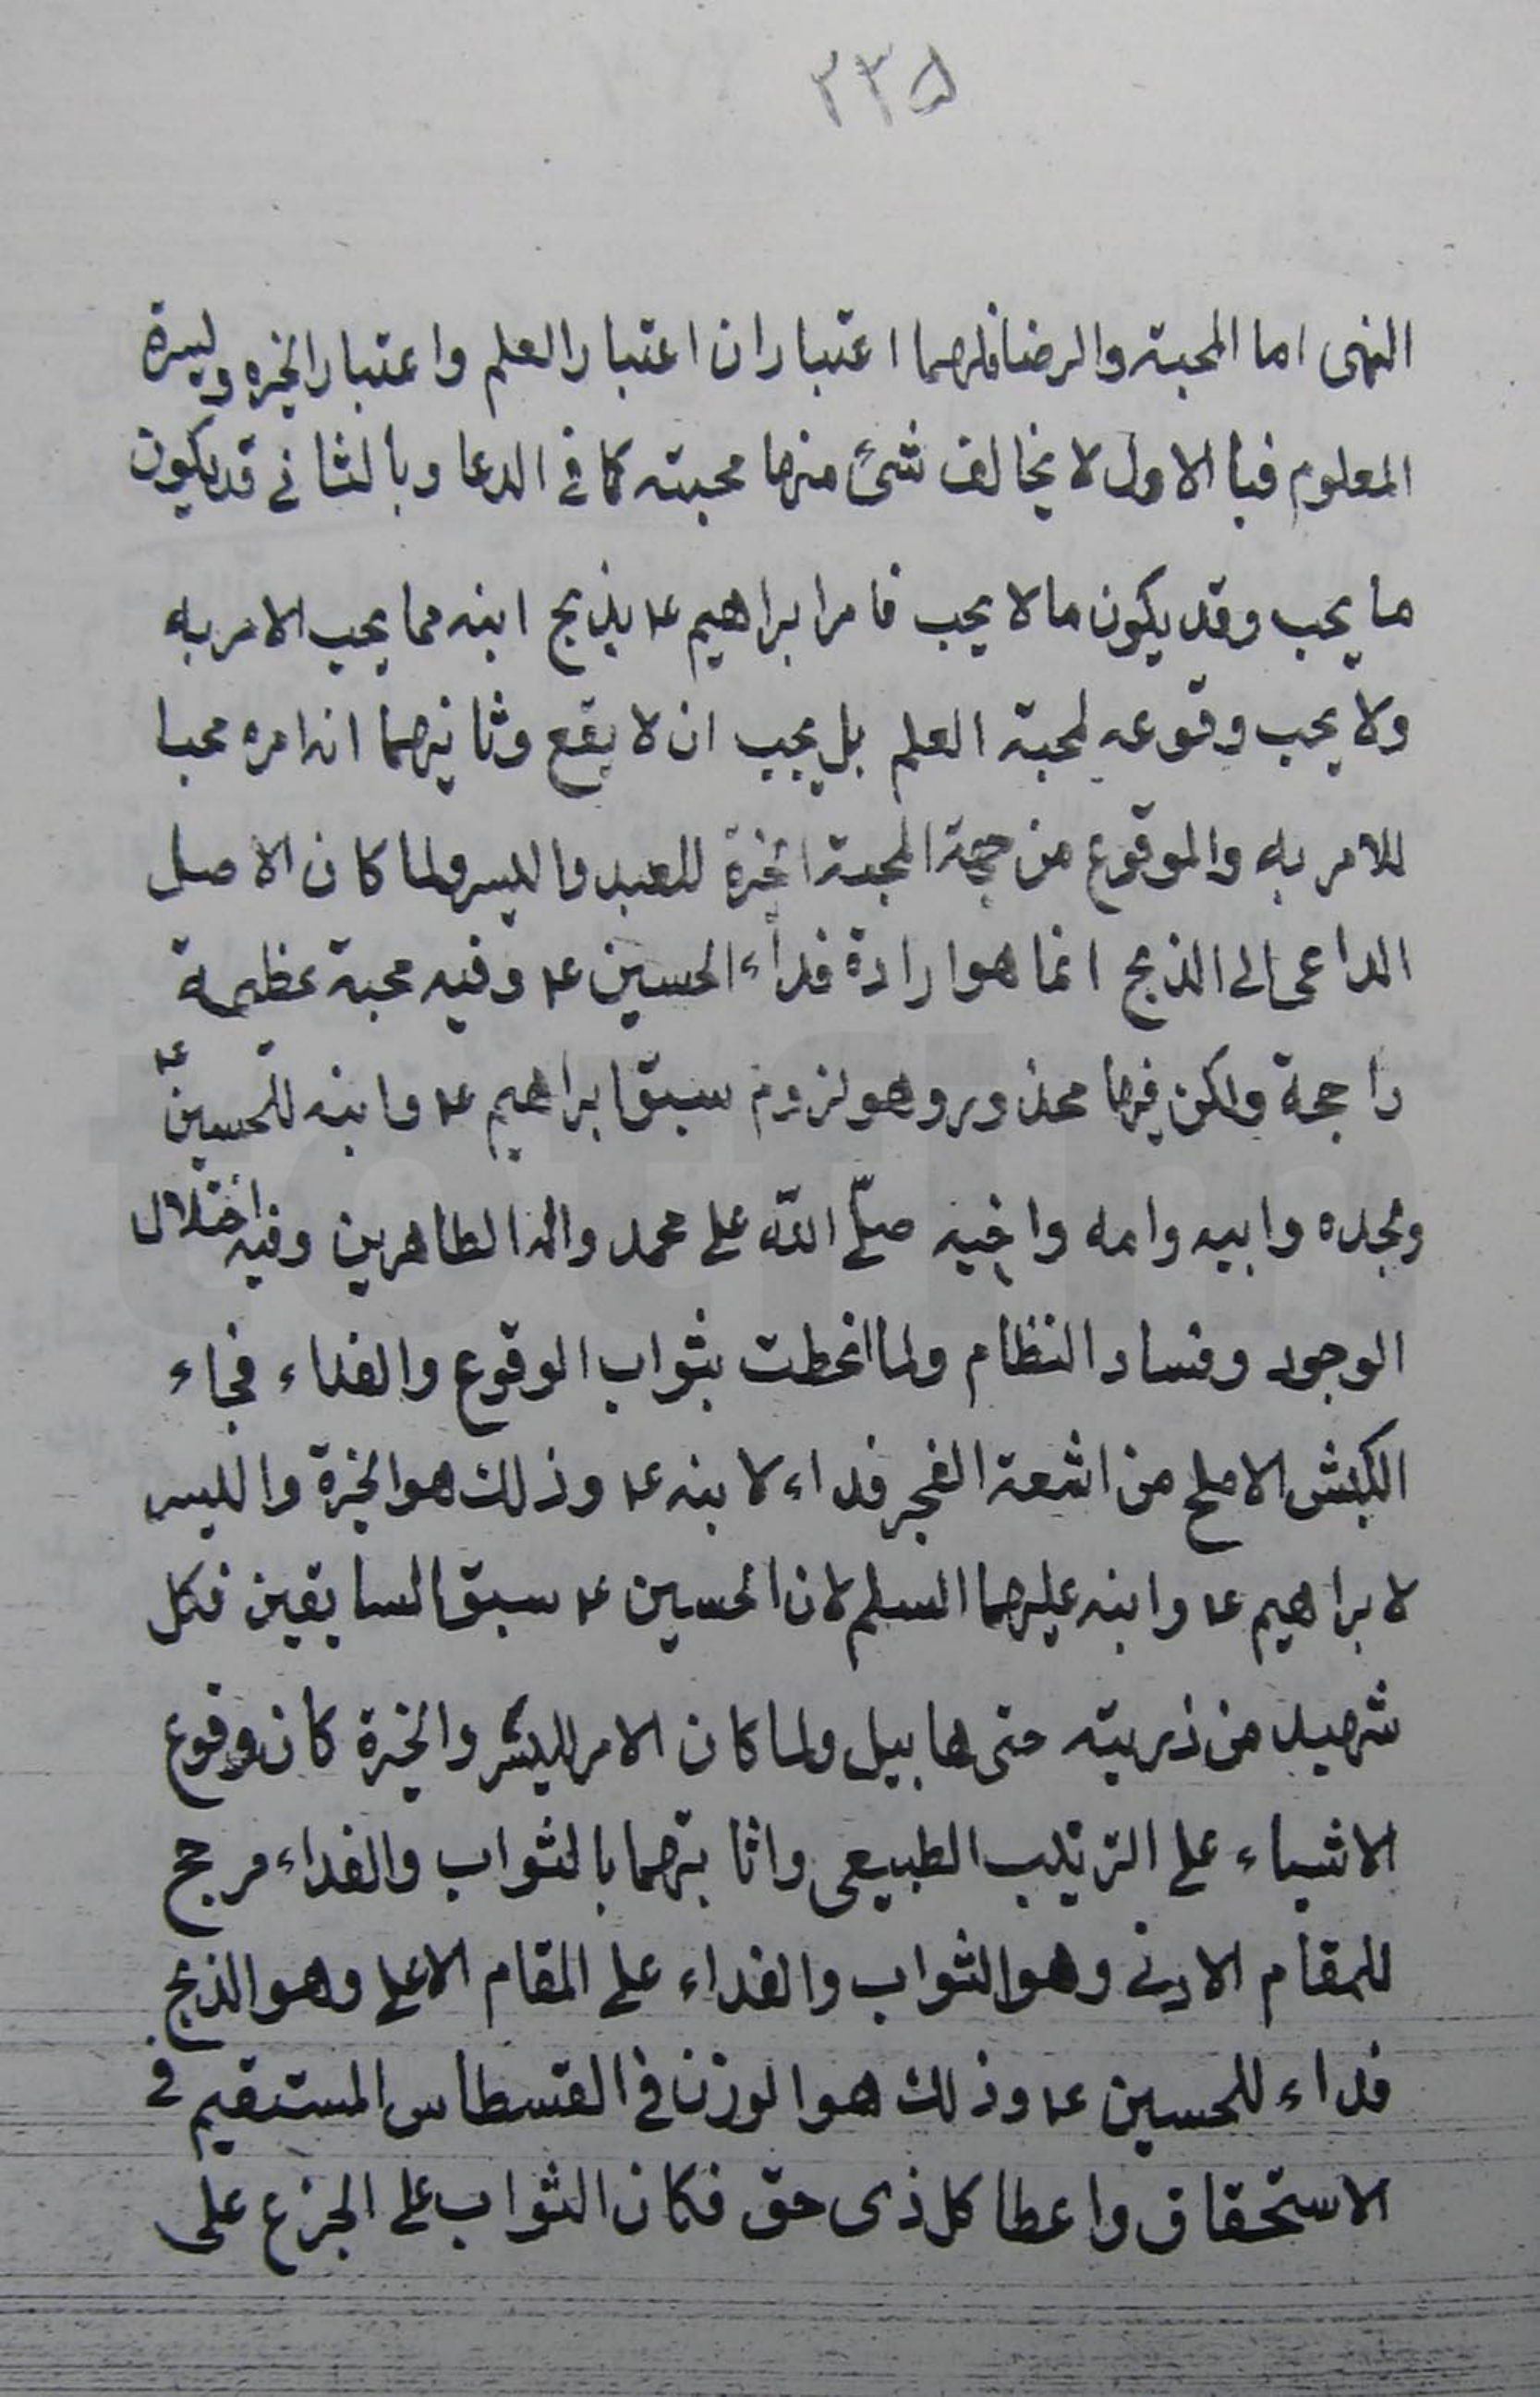 ٢٣۵
النهى اما المحبة والرضا فلهما اعتباران اعتبار العلم واعتبار الخيرة وليسرة
المعلوم فبالاول لا يخالف شئ منها محبته كما فى الدعا وبالثانى قد يكون
ما يحب وقد يكون ما لا يحب فامر ابراهيم ع بذبح ابنه مما يحب الامر به
ولا يحب وقوعه لمحبة العلم بل يحب ان لا يقع وثانيهما انه امره محبا
للامر به والموقوع من جهة المحبة الخيرة للعبد واليسر ولما كان الاصل
الداعى الى الذبح انما هو ارادة فداء الحسين ع وفيه محبة عظيمة
راجحة ولكن فيها محذور وهو لزوم سبق ابراهيم ع وابنه للحسين ع
ولجده وابيه وامه واخيه صلّى اللّه على محمد واله الطاهرين وفيه اختلال
الوجود وفساد النظام ولما انحطت بثواب الوقوع والفداء فجاء
الكبش الاملح من اشعة الفجر فداء لابنه ع وذلك هو الخيرة واليسر
لابراهيم ع وابنه عليهما السلم لان الحسين ع سبق السابقين فكل
شهيد من ذريته حتى هابيل ولما كان الامر لليسر والخيرة كان وقوع
الاشياء على الترتيب الطبيعى واثابتهما بالثواب والفداء مرجح
للمقام الادنى وهو الثواب والفداء على المقام الاعلى وهو الذبح
فداء للحسين ع وذلك هو الوزن فى القسطاس المستقيم فى
الاستحقاق واعطا كل ذى حق فكان الثواب على الجزع على